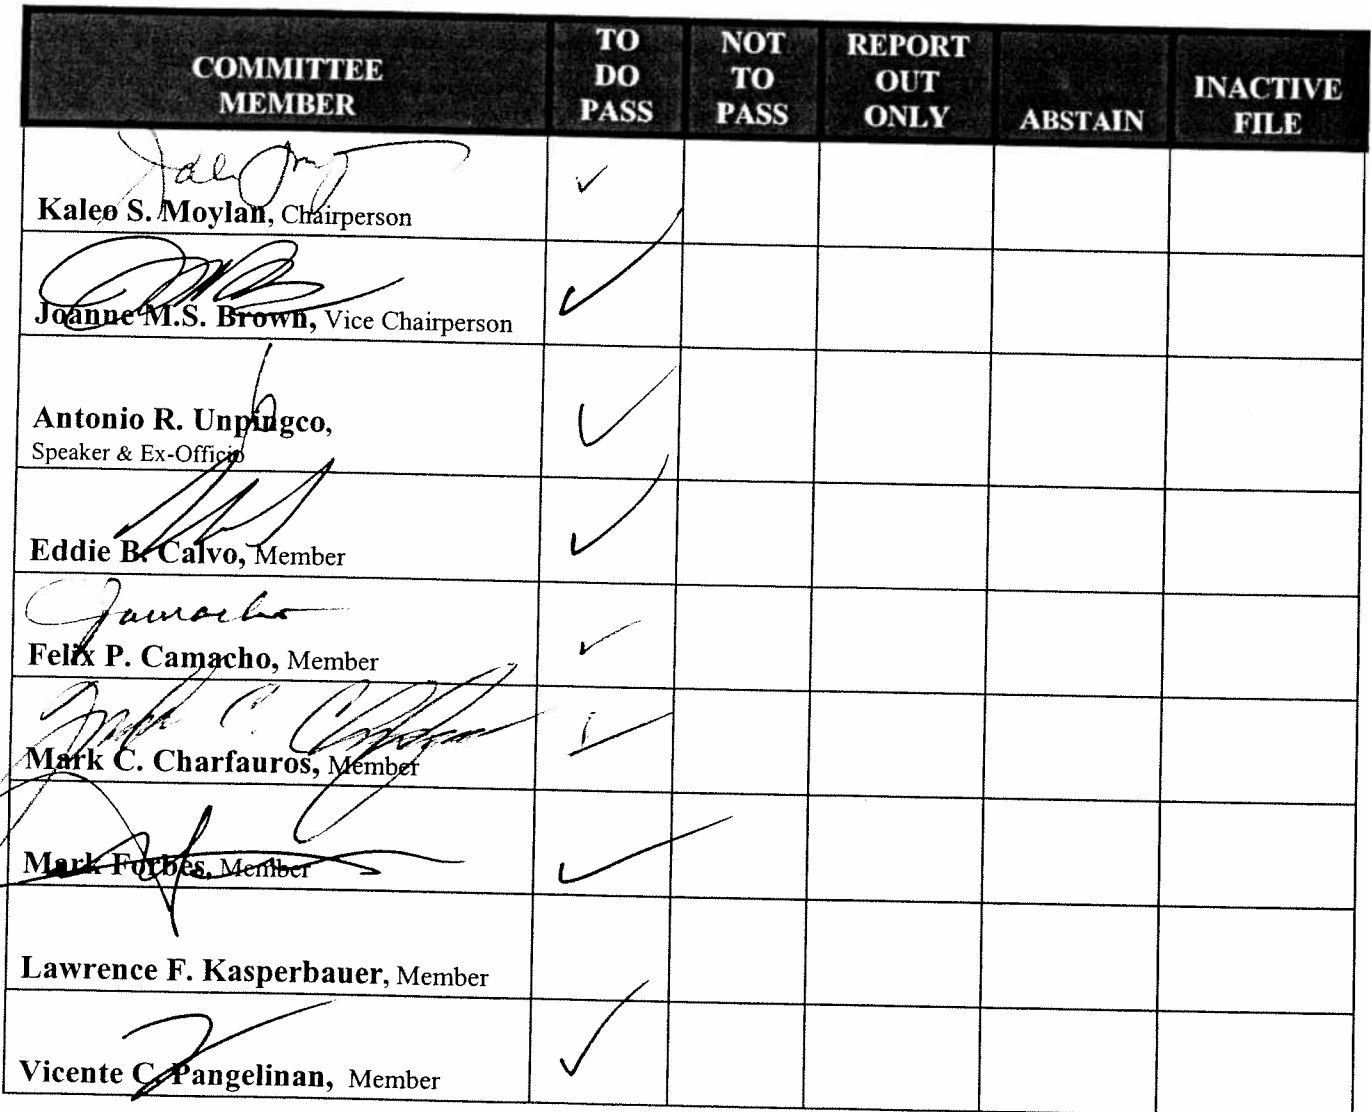 COMMITTEE
MEMBER
TO
DO
PASS
NOT
TO
PASS
REPORT
OUT
ONLY
ABSTAIN
INACTIVE
FILE
Kaleo S. Moylan, Chairperson
Joanne M.S. Brown, Vice Chairperson
Antonio R. Unpingco,
Speaker & Ex-Officio
Eddie B. Calvo, Member
Camacho
Felix P. Camacho, Member
Mark C. Charfauros, Member
Mark Forbes, Member
Lawrence F. Kasperbauer, Member
Vicente C. Pangelinan, Member